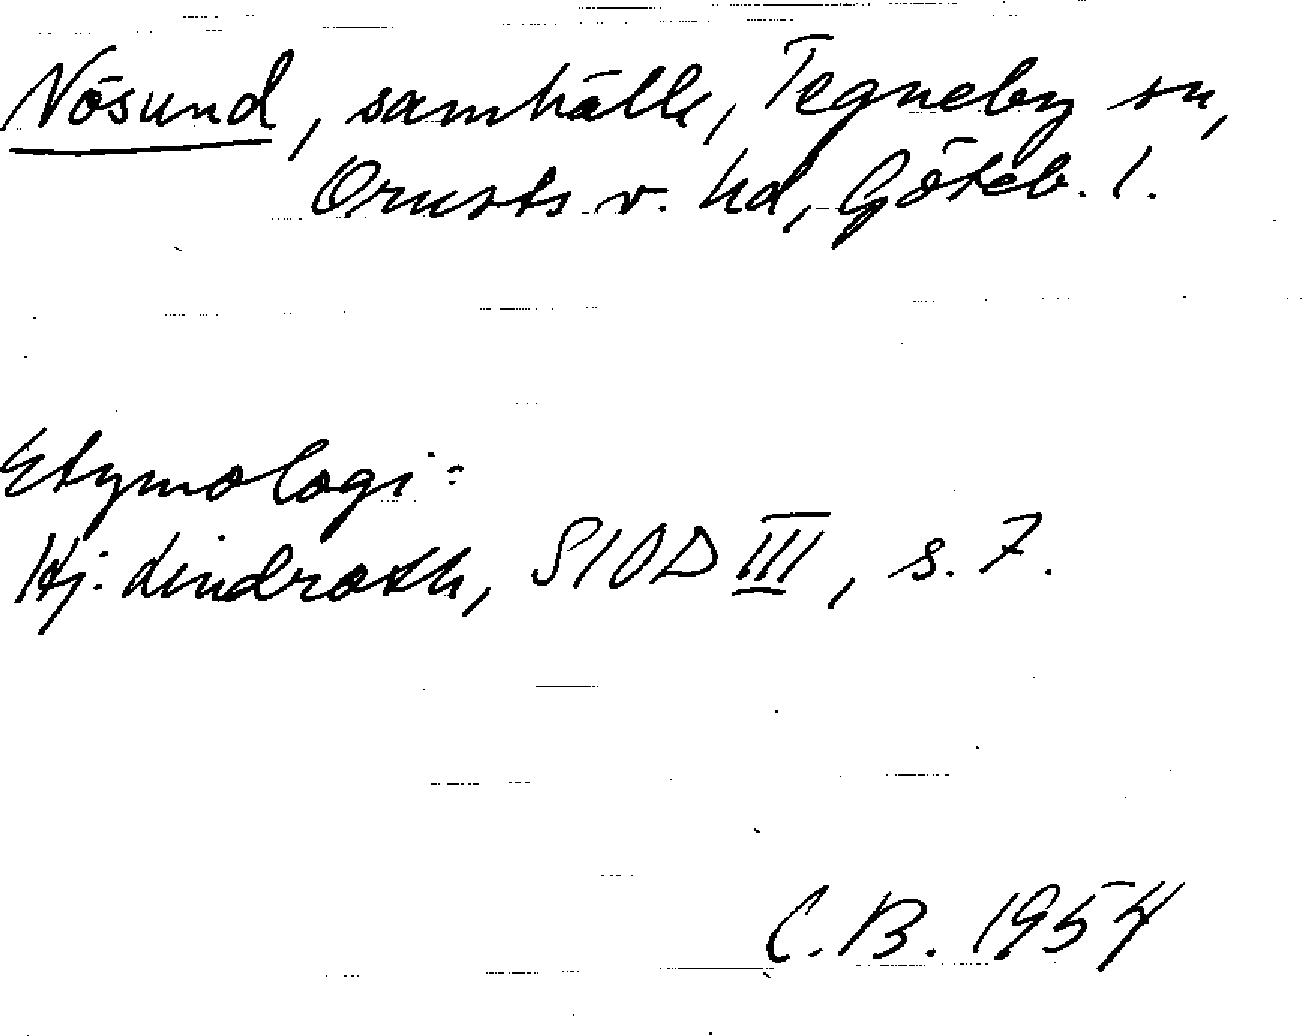 Nösund, samhälle, Tegneby sn,
Orusts v. hd, Göteb. l.
Etymologi:
Hj. Lindroth, SIOD III, s. 7.
C.B. 1954